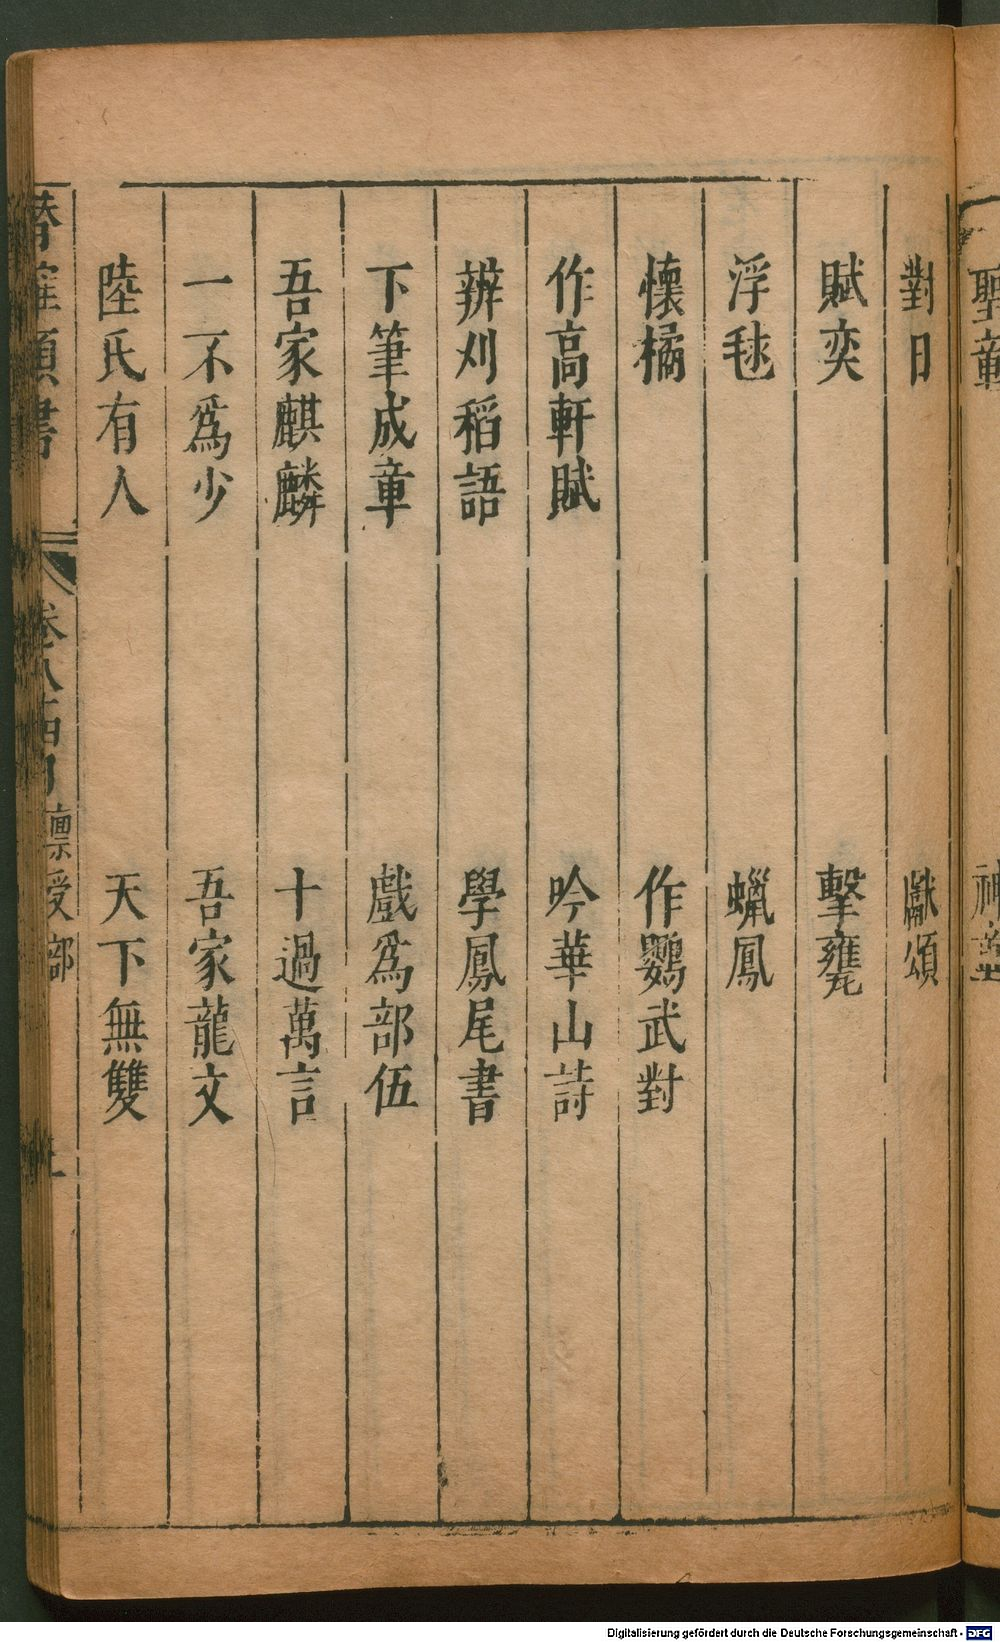 對日 獻頌
賦奕 擊甕
浮毬 蠟鳳
懷橘 作鸚武對
作高軒賦 吟華山詩
辨刈稻語 學鳳尾書
下筆成章 戲為部伍
吾家麒麟 十過萬言
一不為少 吾家龍文
陸氏有人 天下無雙
潛確類書 卷八 稟受部
Digitalisierung gefördert durch die Deutsche Forschungsgemeinschaft - DFG